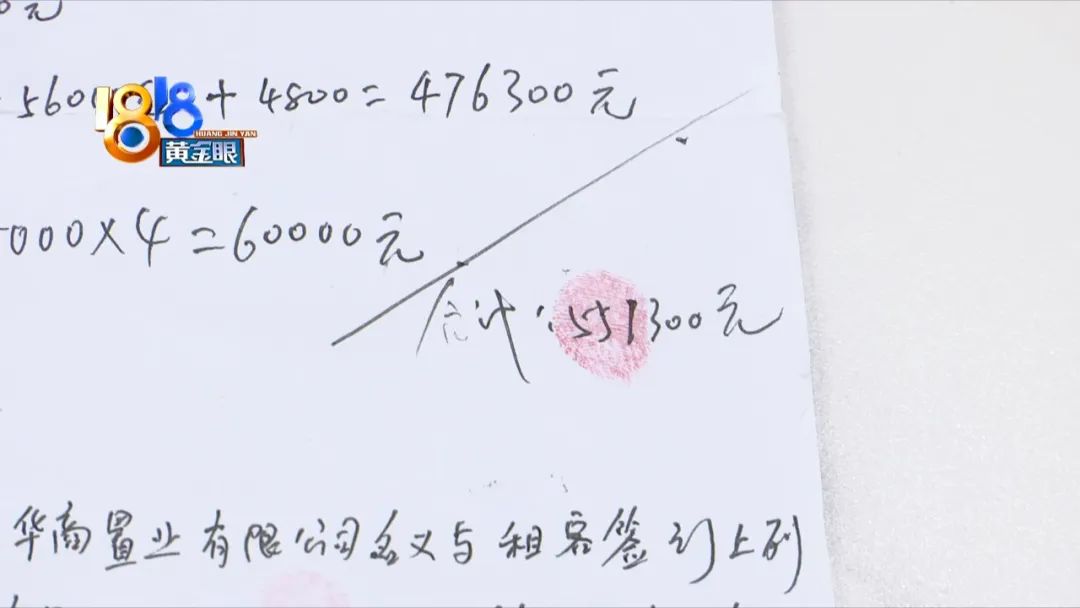 0元
5600 + 4800 = 476300元
1818
HUANG JIN YAN
黄金眼
000×4=60000元
合计:551300元
华商置业有限公司名义与租客签订上列